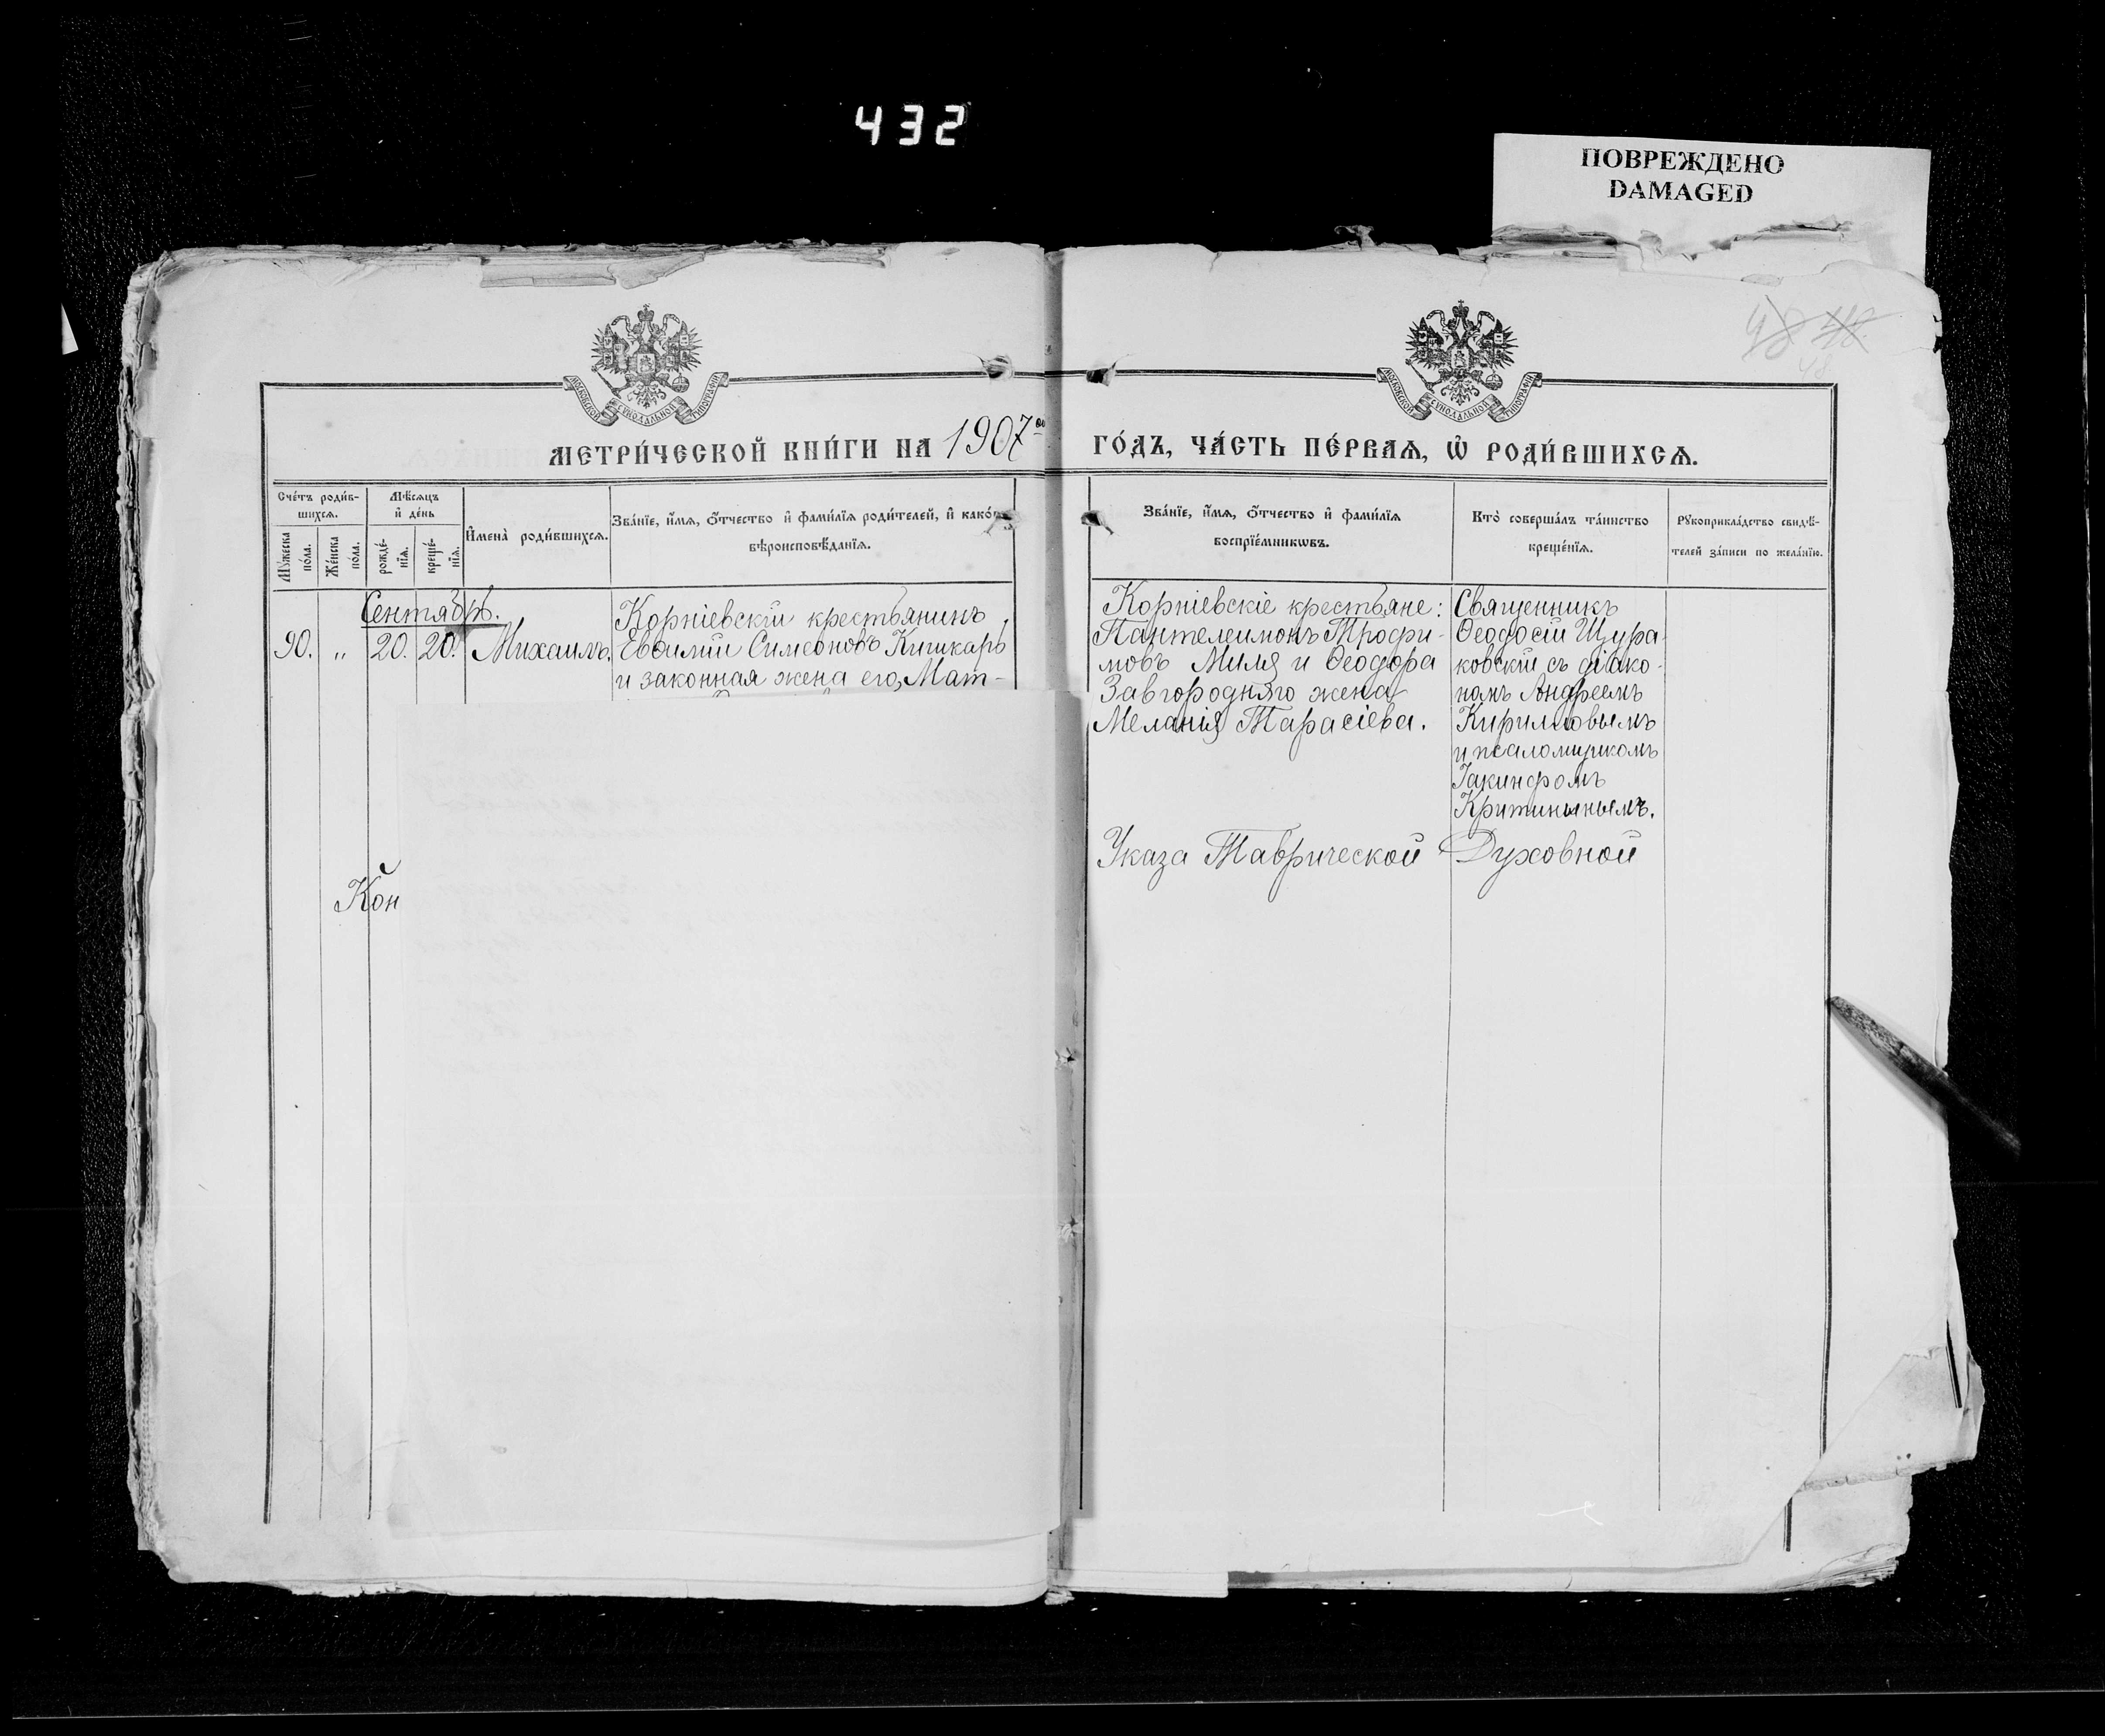 432
ПОВРЕЖДЕНО
DAMAGED
48 48
48
МОСКОВСКОЙ СѴНОДАЛЬНОЙ ТИПОГРАФІИ
МОСКОВСКОЙ СѴНОДАЛЬНОЙ ТИПОГРАФІИ
МЕТРИ́ЧЕСКОЙ КНИ́ГИ НА 1907 ГО́ДЪ, ЧА́СТЬ ПЕ́РВАЯ, Ѡ РОДИ́ВШИХСѦ.
Сче́тъ роди́в-
шихсѧ.
Мꙋ́жеска
по́ла.
Же́нска
по́ла.
Мѣ́сѧцъ
и҆ де́нь
рожде́-
нїѧ.
креще́-
нїѧ.
И҆мена̀ роди́вшихсѧ.
Зва́нїе, и҆́мѧ, ѻ҆́тчество и҆ фами́лїѧ роди́телей, и҆ како́гѡ
вѣроисповѣ́данїѧ.
Зва́нїе, и҆́мѧ, ѻ҆́тчество и҆ фами́лїѧ
воспрїе́мникѡвъ.
Кто̀ соверша́лъ та́инство
креще́нїѧ.
Рꙋкоприкла́дство свидѣ́-
телей за́писи по жела́нїю.
Сентябрь.
90. „ 20. 20. Михаилъ.
Корніевскій крестьянинъ
Евѳимій Симеоновъ Кишкарь
и законная жена его, Мат-
Корніевскіе крестьяне:
Пантелеимонъ Трофи-
мовъ Миля и Ѳеодора
Завгородняго жена
Меланія Тарасіева.
Священникъ
Ѳеодосій Щура-
ковскій съ діако-
номъ Андреемъ
Кирилловымъ
и псаломщикомъ
Іакинфомъ
Критининымъ.
Кон
Указа Таврической Духовной